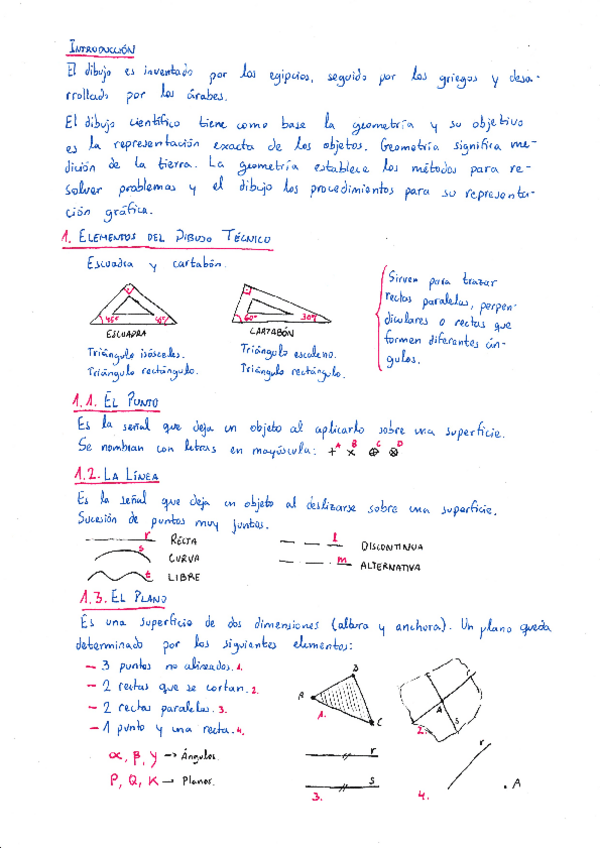 INTRODUCCIÓN
El dibujo es inventado por los egipcios, seguido por los griegos y desa-
rrollado por los árabes.
El dibujo científico tiene como base la geometría y su objetivo
es la representación exacta de los objetos. Geometría significa me-
dición de la tierra. La geometría establece los métodos para re-
solver problemas y el dibujo los procedimientos para su representa-
ción gráfica.
1. ELEMENTOS DEL DIBUJO TÉCNICO
Escuadra y cartabón.
45º 45º
ESCUADRA
Triángulo isósceles.
Triángulo rectángulo.
60º 30º
CARTABÓN
Triángulo escaleno.
Triángulo rectángulo.
Sirven para trazar
rectas paralelas, perpen-
diculares o rectas que
formen diferentes án-
gulos.
1.1. EL PUNTO
Es la señal que deja un objeto al aplicarlo sobre una superficie.
Se nombran con letras en mayúscula: A B C D
1.2. LA LÍNEA
Es la señal que deja un objeto al deslizarse sobre una superficie.
Sucesión de puntos muy juntos.
r RECTA
s CURVA
t LIBRE
l DISCONTINUA
m ALTERNATIVA
1.3. EL PLANO
Es una superficie de dos dimensiones (altura y anchura). Un plano queda
determinado por los siguientes elementos:
- 3 puntos no alineados. 1.
- 2 rectas que se cortan. 2.
- 2 rectas paralelas. 3.
- 1 punto y una recta. 4.
α, β, γ → Ángulos.
P, Q, K → Planos.
A B C 1.
r A s 2.
r
s
3.
r
A
4.